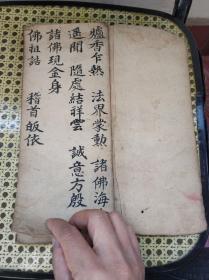 爐香乍熱 法界蒙勳 諸佛海
遥聞 隨處結祥雲 誠意方殷
諸佛現金身
佛祖誥 稽首皈依